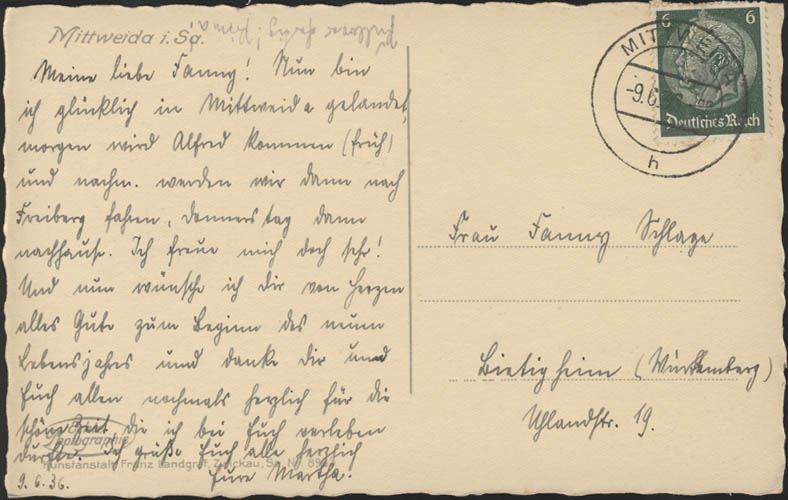 Mittweida i. Sa.
Meine liebe Fanny! Nun bin
ich glücklich in Mittweida gelandet,
morgen wird Alfred kommen (früh)
und nachm. werden wir dann nach
Freiberg fahren, Donnerstag dann
nachhause. Ich freue mich doch sehr!
Und nun wünsche ich Dir von Herzen
alles Gute zum Beginn des neuen
Lebensjahres und danke Dir und
Euch allen nochmals herzlich für die
schöne Zeit die ich bei Euch verleben
durfte. Ich grüße Euch alle herzlich
Eure Martha.
9.6.36.
photographie
Kunstanstalt Franz Landgraf, Zwickau, Sa. Nr.
6 6
Deutsches Reich
MITTWEIDA
-9.6.
h
Frau Fanny Schlage
Bietigheim (Württemberg)
Uhlandstr. 19.